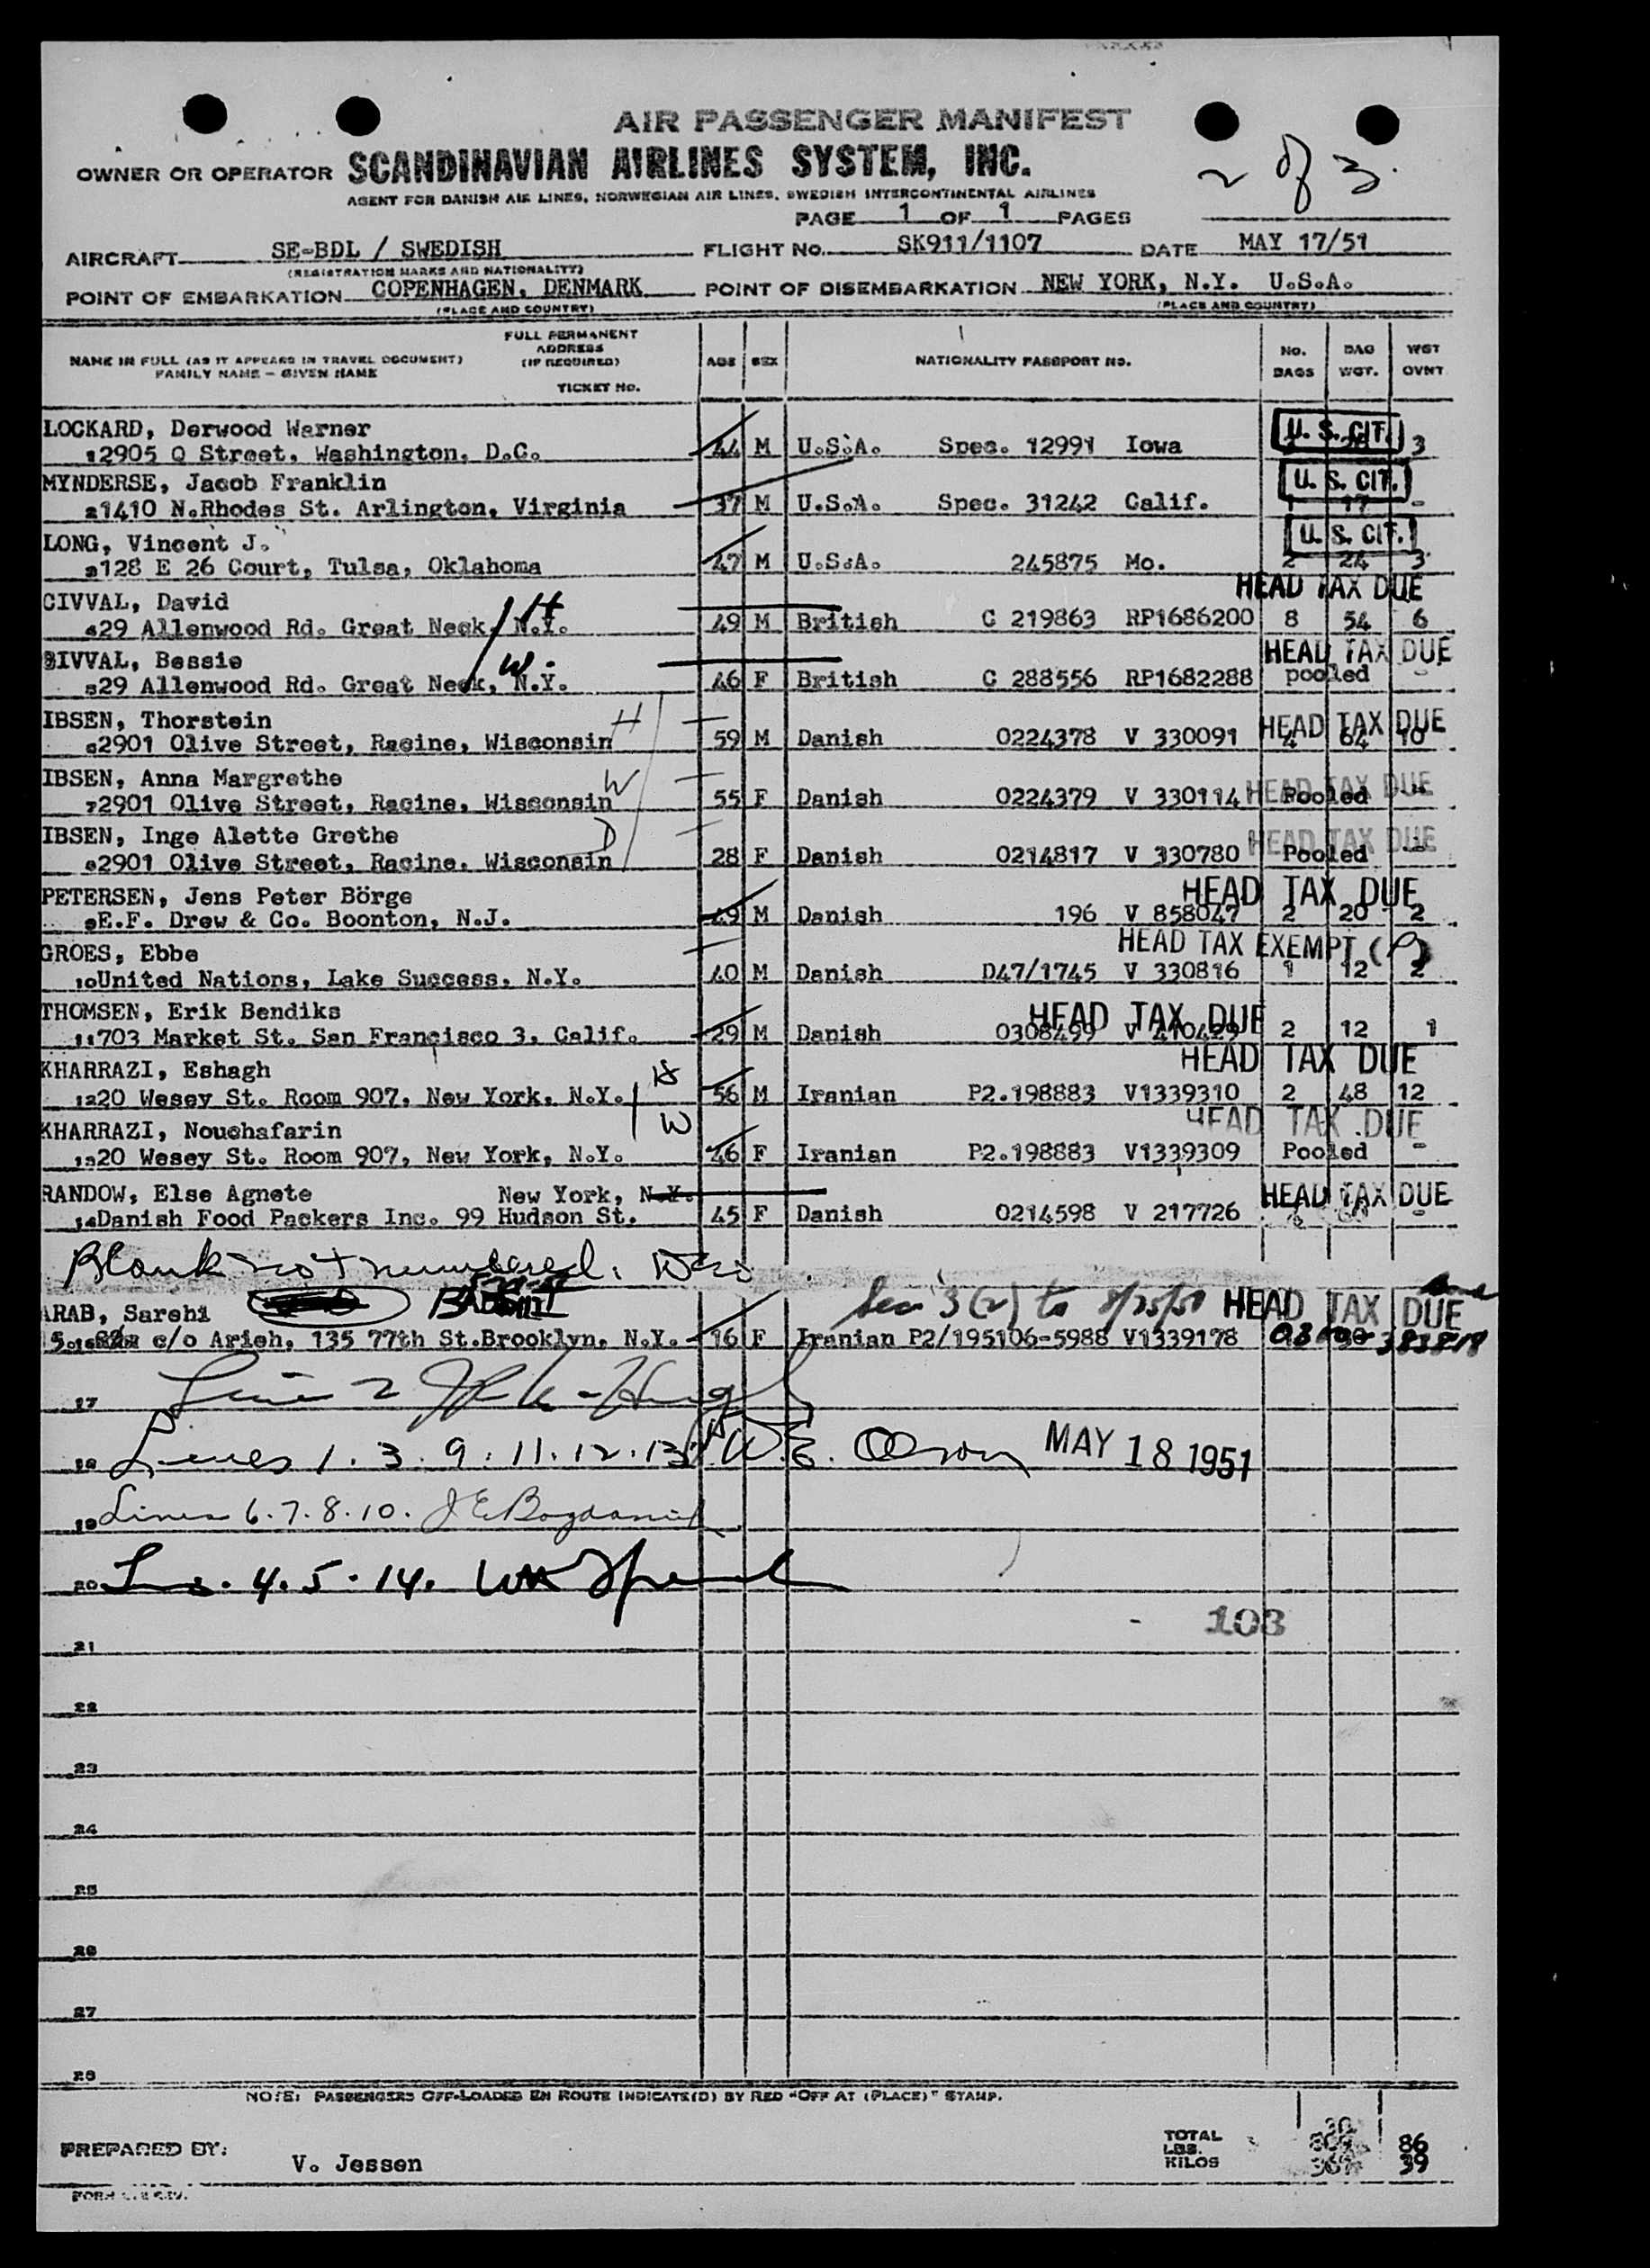 AIR PASSENGER MANIFEST
OWNER OR OPERATOR SCANDINAVIAN AIRLINES SYSTEM, INC.
2 of 3.
AGENT FOR DANISH AIR LINES, NORWEGIAN AIR LINES, SWEDISH INTERCONTINENTAL AIRLINES
PAGE 1 OF 1 PAGES
AIRCRAFT SE-BDL / SWEDISH FLIGHT No. SK911/1107 DATE MAY 17/51
(REGISTRATION MARKS AND NATIONALITY)
POINT OF EMBARKATION COPENHAGEN, DENMARK POINT OF DISEMBARKATION NEW YORK, N.Y. U.S.A.
(PLACE AND COUNTRY) (PLACE AND COUNTRY)
NAME IN FULL (AS IT APPEARS IN TRAVEL DOCUMENT) FAMILY NAME - GIVEN NAME FULL PERMANENT ADDRESS (IF REQUIRED) TICKET No. AGE SEX NATIONALITY PASSPORT No. No. BAGS BAG WGT. WGT OVNT
LOCKARD, Derwood Warner U.S. CIT.
1 2905 Q Street, Washington, D.C. 44 M U.S.A. Spec. 12991 Iowa 3
MYNDERSE, Jacob Franklin U.S. CIT.
2 1410 N.Rhodes St. Arlington, Virginia 37 M U.S.A. Spec. 31242 Calif. 1 17 -
LONG, Vincent J. U.S. CIT.
3 128 E 26 Court, Tulsa, Oklahoma 47 M U.S.A. 245875 Mo. 2 24 3
CIVVAL, David H HEAD TAX DUE
4 29 Allenwood Rd. Great Neck, N.Y. 49 M British C 219863 RP1686200 8 54 6
CIVVAL, Bessie W HEAD TAX DUE
5 29 Allenwood Rd. Great Neck, N.Y. 46 F British C 288556 RP1682288 pooled -
IBSEN, Thorstein H HEAD TAX DUE
6 2901 Olive Street, Racine, Wisconsin 59 M Danish 0224378 V 330091 4 64 10
IBSEN, Anna Margrethe W HEAD TAX DUE
7 2901 Olive Street, Racine, Wisconsin 55 F Danish 0224379 V 330114 Pooled -
IBSEN, Inge Alette Grethe D HEAD TAX DUE
8 2901 Olive Street, Racine, Wisconsin 28 F Danish 0214817 V 330780 Pooled -
PETERSEN, Jens Peter Börge HEAD TAX DUE
9 E.F. Drew & Co. Boonton, N.J. 49 M Danish 196 V 858047 2 20 2
GROES, Ebbe HEAD TAX EXEMPT
10 United Nations, Lake Success, N.Y. 40 M Danish D47/1745 V 330816 1 12 2
THOMSEN, Erik Bendiks HEAD TAX DUE
11 703 Market St. San Francisco 3, Calif. 29 M Danish 0308499 V 410429 2 12 1
KHARRAZI, Eshagh H HEAD TAX DUE
12 20 Wesey St. Room 907, New York, N.Y. 56 M Iranian P2.198883 V1339310 2 48 12
KHARRAZI, Nouchafarin W HEAD TAX DUE
13 20 Wesey St. Room 907, New York, N.Y. 46 F Iranian P2.198883 V1339309 Pooled -
RANDOW, Else Agnete New York, N.Y. HEAD TAX DUE
14 Danish Food Packers Inc. 99 Hudson St. 45 F Danish 0214598 V 217726 -
Blank not numbered.
ARAB, Sarehi Sec 3(2) to 8/25/51 HEAD TAX DUE
c/o Arieh, 135 77th St.Brooklyn, N.Y. 16 F Iranian P2/195106-5988 V1339178
17 Line 2
18 Lines 1. 3. 9. 11. 12. 13 W.E. Olson MAY 18 1951
19 Lines 6. 7. 8. 10.
20 Lns. 4. 5. 14.
103
21
22
23
24
25
26
27
28
NOTE: PASSENGERS OFF-LOADED EN ROUTE INDICATE(D) BY RED "OFF AT (PLACE)" STAMP.
PREPARED BY: V. Jessen
TOTAL
LBS. 86
KILOS 367 39